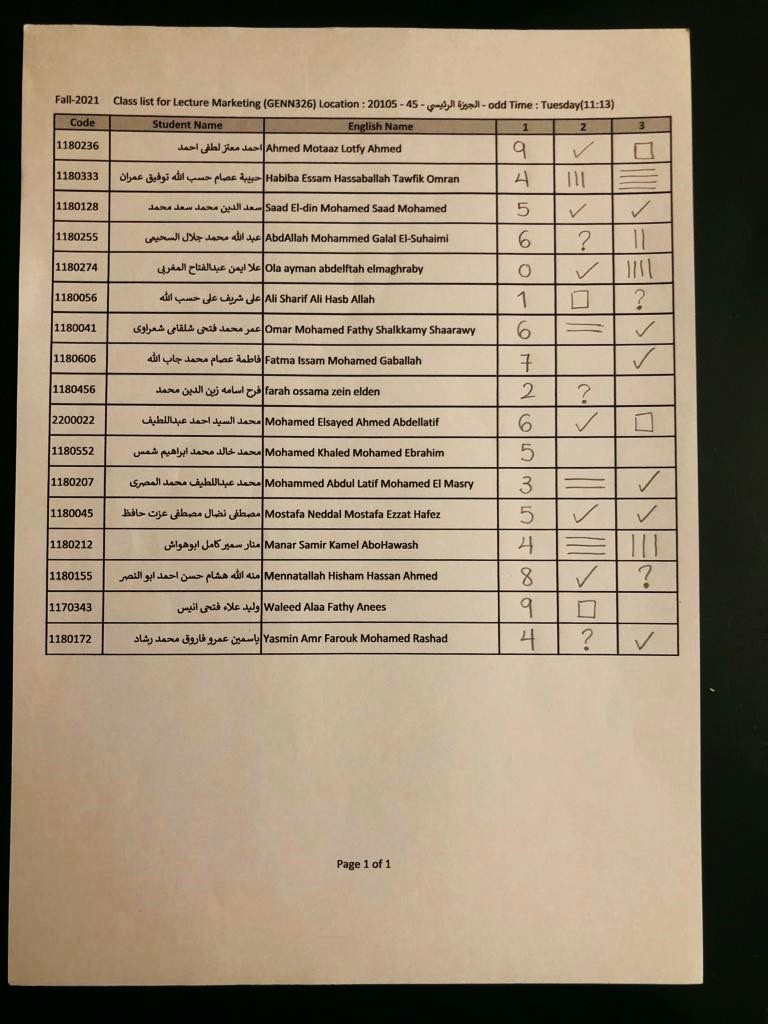 Fall-2021 Class list for Lecture Marketing (GENN326) Location : 20105 - 45 - الجيزة الرئيسي - odd Time : Tuesday(11:13)
Code Student Name English Name 1 2 3
1180236 احمد معتز لطفى احمد Ahmed Motaaz Lotfy Ahmed 9 ✓ □
1180333 حبيبة عصام حسب الله توفيق عمران Habiba Essam Hassaballah Tawfik Omran 4 ||| ☰
1180128 سعد الدين محمد سعد محمد Saad El-din Mohamed Saad Mohamed 5 ✓ ✓
1180255 عبد الله محمد جلال السحيمى AbdAllah Mohammed Galal El-Suhaimi 6 ? ||
1180274 علا ايمن عبدالفتاح المغربى Ola ayman abdelftah elmaghraby 0 ✓ ||||
1180056 على شريف على حسب الله Ali Sharif Ali Hasb Allah 1 □ ?
1180041 عمر محمد فتحى شلقامى شعراوى Omar Mohamed Fathy Shalkkamy Shaarawy 6 = ✓
1180606 فاطمة عصام محمد جاب الله Fatma Issam Mohamed Gaballah 7 ✓
1180456 فرح اسامه زين الدين محمد farah ossama zein elden 2 ?
2200022 محمد السيد احمد عبداللطيف Mohamed Elsayed Ahmed Abdellatif 6 ✓ □
1180552 محمد خالد محمد ابراهيم شمس Mohamed Khaled Mohamed Ebrahim 5
1180207 محمد عبداللطيف محمد المصرى Mohammed Abdul Latif Mohamed El Masry 3 = ✓
1180045 مصطفى نضال مصطفى عزت حافظ Mostafa Neddal Mostafa Ezzat Hafez 5 ✓ ✓
1180212 منار سمير كامل ابوهواش Manar Samir Kamel AboHawash 4 ≡ |||
1180155 منه الله هشام حسن احمد ابو النصر Mennatallah Hisham Hassan Ahmed 8 ✓ ?
1170343 وليد علاء فتحى انيس Waleed Alaa Fathy Anees 9 □
1180172 ياسمين عمرو فاروق محمد رشاد Yasmin Amr Farouk Mohamed Rashad 4 ? ✓
Page 1 of 1